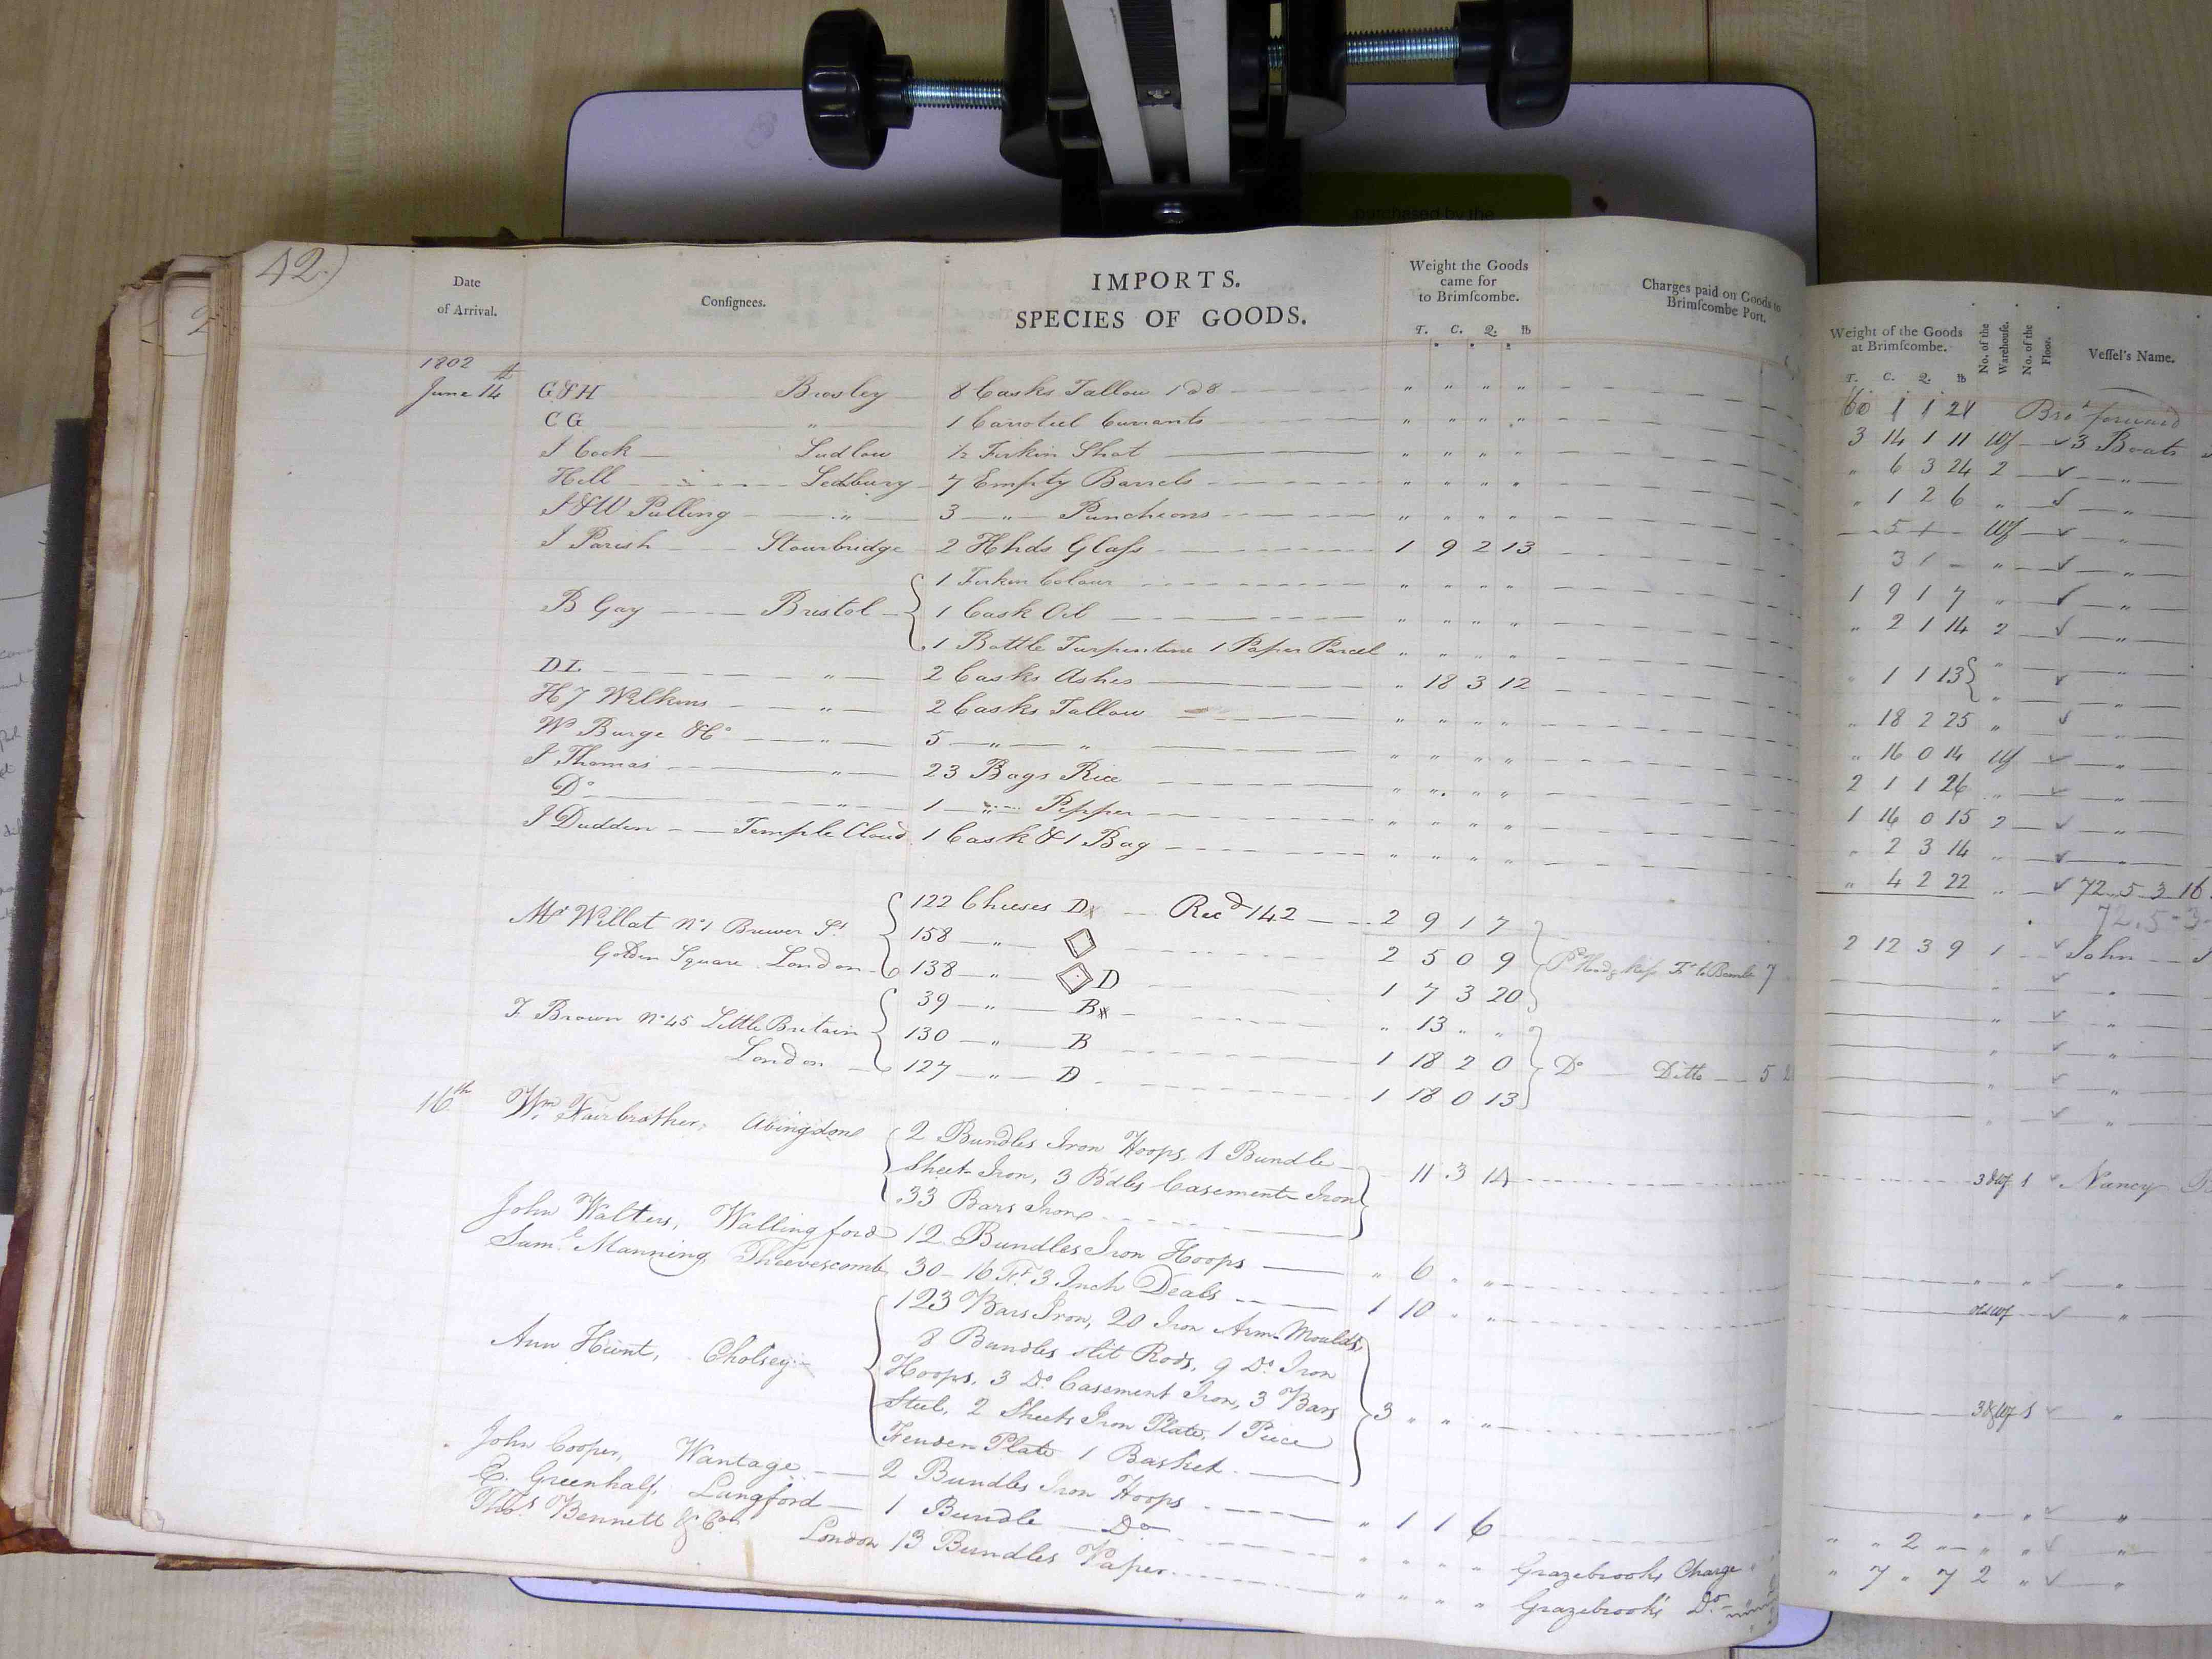 purchased by the
42.)
Date
of Arrival.
Consignees.
IMPORTS.
SPECIES OF GOODS.
Weight the Goods
came for
to Brimscombe.
T. C. Q. lb
Charges paid on Goods to
Brimscombe Port.
1802
June 14th G&H Brosley 8 Casks Tallow 1@8 " " " "
CG " 1 Carroteel Currants " " " "
J Cook Ludlow ½ Firkin Shot " " " "
Hill Ledbury 7 Empty Barrels " " " "
J&W Pulling " 3 " Puncheons " " " "
J Parish Stourbridge 2 Hhds Glass 1 9 2 13
1 Firkin Colour " " " "
B Gay Bristol 1 Cask Oil " " " "
1 Bottle Turpentine 1 Paper Parcel " " " "
DL " 2 Casks Ashes " 18 3 12
H J Wilkins " 2 Casks Tallow " " " "
W Burge & Co " 5 " " " " " "
J Thomas " 23 Bags Rice " " " "
Do " 1 " Pepper " " " "
J Dudden Temple Cloud 1 Cask & 1 Bag " " " "
122 Cheeses D Recd 142 2 9 1 7
Mr Willat No 1 Brewer St 158 " 2 5 0 9
Golden Square London 138 " D 1 7 3 20
Ft to 7
39 " B " 13 " "
F. Brown No 45 Little Britain 130 " B 1 18 2 0
London 127 " D 1 18 0 13
Do Ditto 5
16th Wm Fairbrother, Abingdon 2 Bundles Iron Hoops, 1 Bundle
Sheet Iron, 3 Bdles Casement Iron 11 3 14
33 Bars Iron
John Walters, Wallingford 12 Bundles Iron Hoops " 6 " "
Saml Manning, Thievescomb 30 - 16 Ft 3 Inch Deals 1 10 " "
123 Bars Iron, 20 Iron Arm Moulds,
8 Bundles slit Rods, 9 Do Iron
Ann Hunt, Cholsey Hoops, 3 Do Casement Iron, 3 Bars
Steel, 2 Sheets Iron Plate, 1 Piece 3 " " "
Fender Plate 1 Basket
John Cooper, Wantage 2 Bundles Iron Hoops " 1 1 6
E. Greenhalf, Langford 1 Bundle Do " " " " Grazebrooks Charge
Thos Bennett & Co London 13 Bundles Paper " " " " Grazebrook's Do
Weight of the Goods
at Brimscombe.
T. C. Q. lb
No. of the
Warehouse.
No. of the
Floor.
Vessel's Name.
60 1 1 21 Brot forward
3 14 1 11 Wf 3 Boats
" 6 3 24 2 "
" 1 2 6 " "
5 1 - Wf "
3 1 - " "
1 9 1 7 " "
" 2 1 14 2 "
1 1 13 "
" 18 2 25 "
" 16 0 14 Wf "
2 1 1 26 "
1 16 0 15 2 "
" 2 3 14 " "
" 4 2 22 " 72 " 5 3 16
72.5-3
2 12 3 9 1 John
3&Wf 1 Nancy
3&Wf 1 "
" " 2 " "
" 7 " 7 2 " "